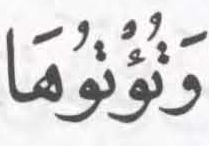 وَتُؤْتُوهَا